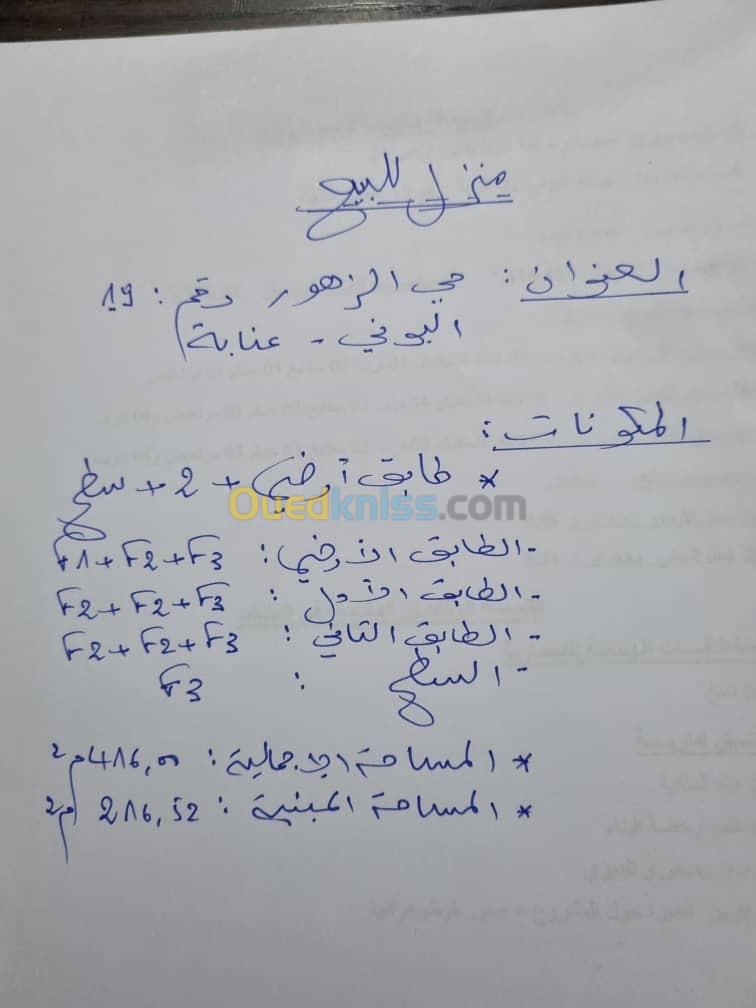 منزل للبيع
العنوان: حي الزهور رقم: 19
البوني - عنابة
المكونات:
* طابق أرضي + 2 + سطح
Ouedkniss.com
- الطابق الأرضي: F1+F2+F3
- الطابق الأول: F2+F2+F3
- الطابق الثاني: F2+F2+F3
- السطح: F3
* المساحة الإجمالية: 416,00 م²
* المساحة المبنية: 216,52 م²